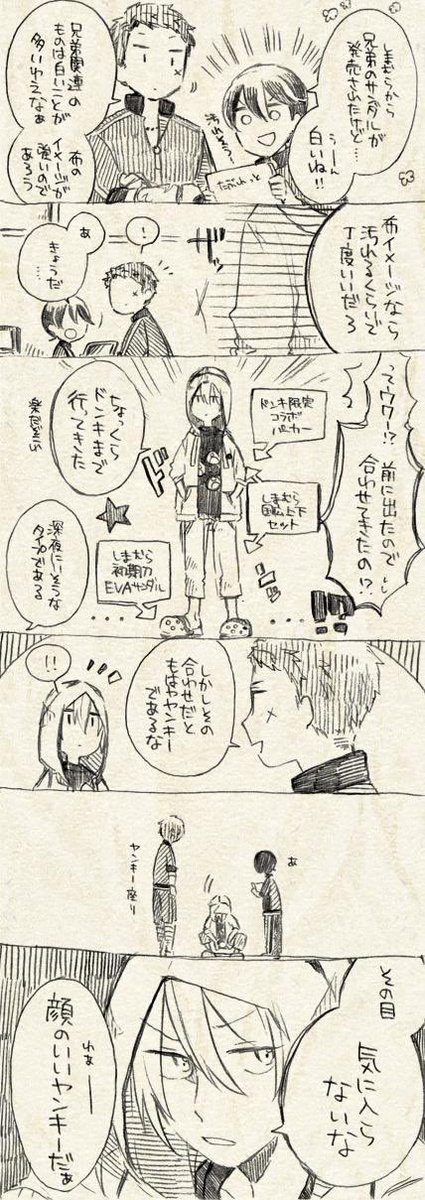 しまむらから
兄弟のサンダルが
発売されたけど…
うーん
白いね!!
兄弟関連の
ものは白いことが
多いゆえなぁ
布の
イメージが
強いので
あろう
布イメージなら
汚れるくらいで
丁度いいだろ
ザッ
!
あ
きょうだ
い…
ってウワー!?
前に出たので
合わせてきたの!?
ドンキ限定
コラボ
パーカー
ちょっくら
ドンキまで
行ってきた
ドド
しまむら
セット
しまむら
初期刀
EVAサンダル
深夜にいそうな
タイプである
しかしその
合わせだと
もはやヤンキー
であるな
!!
あ
ヤンキー座り
その目
気に入ら
ないな
わぁー
顔のいいヤンキーだぁ